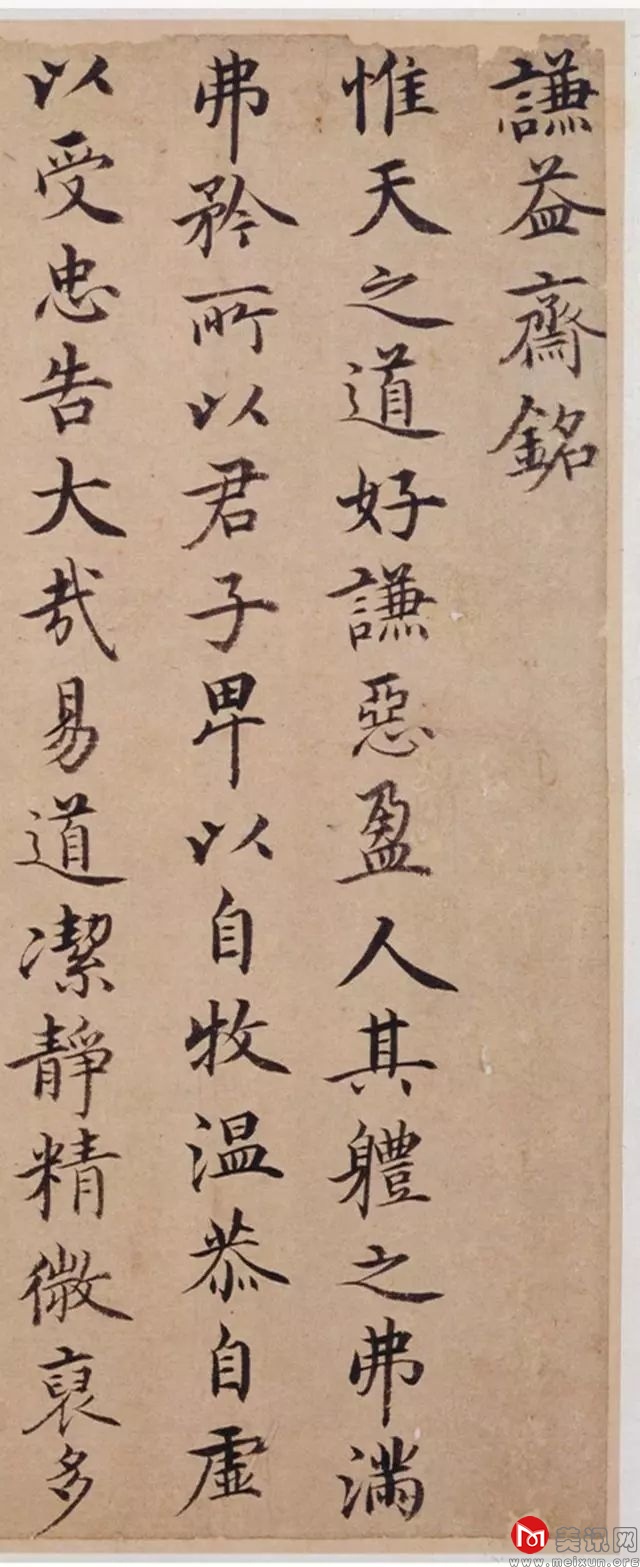 謙益齋銘
惟天之道好謙惡盈人其軆之弗滿
弗矜所以君子卑以自牧温恭自虛
以受忠告大哉易道潔靜精微裒多
美讯网
www.meixun.org